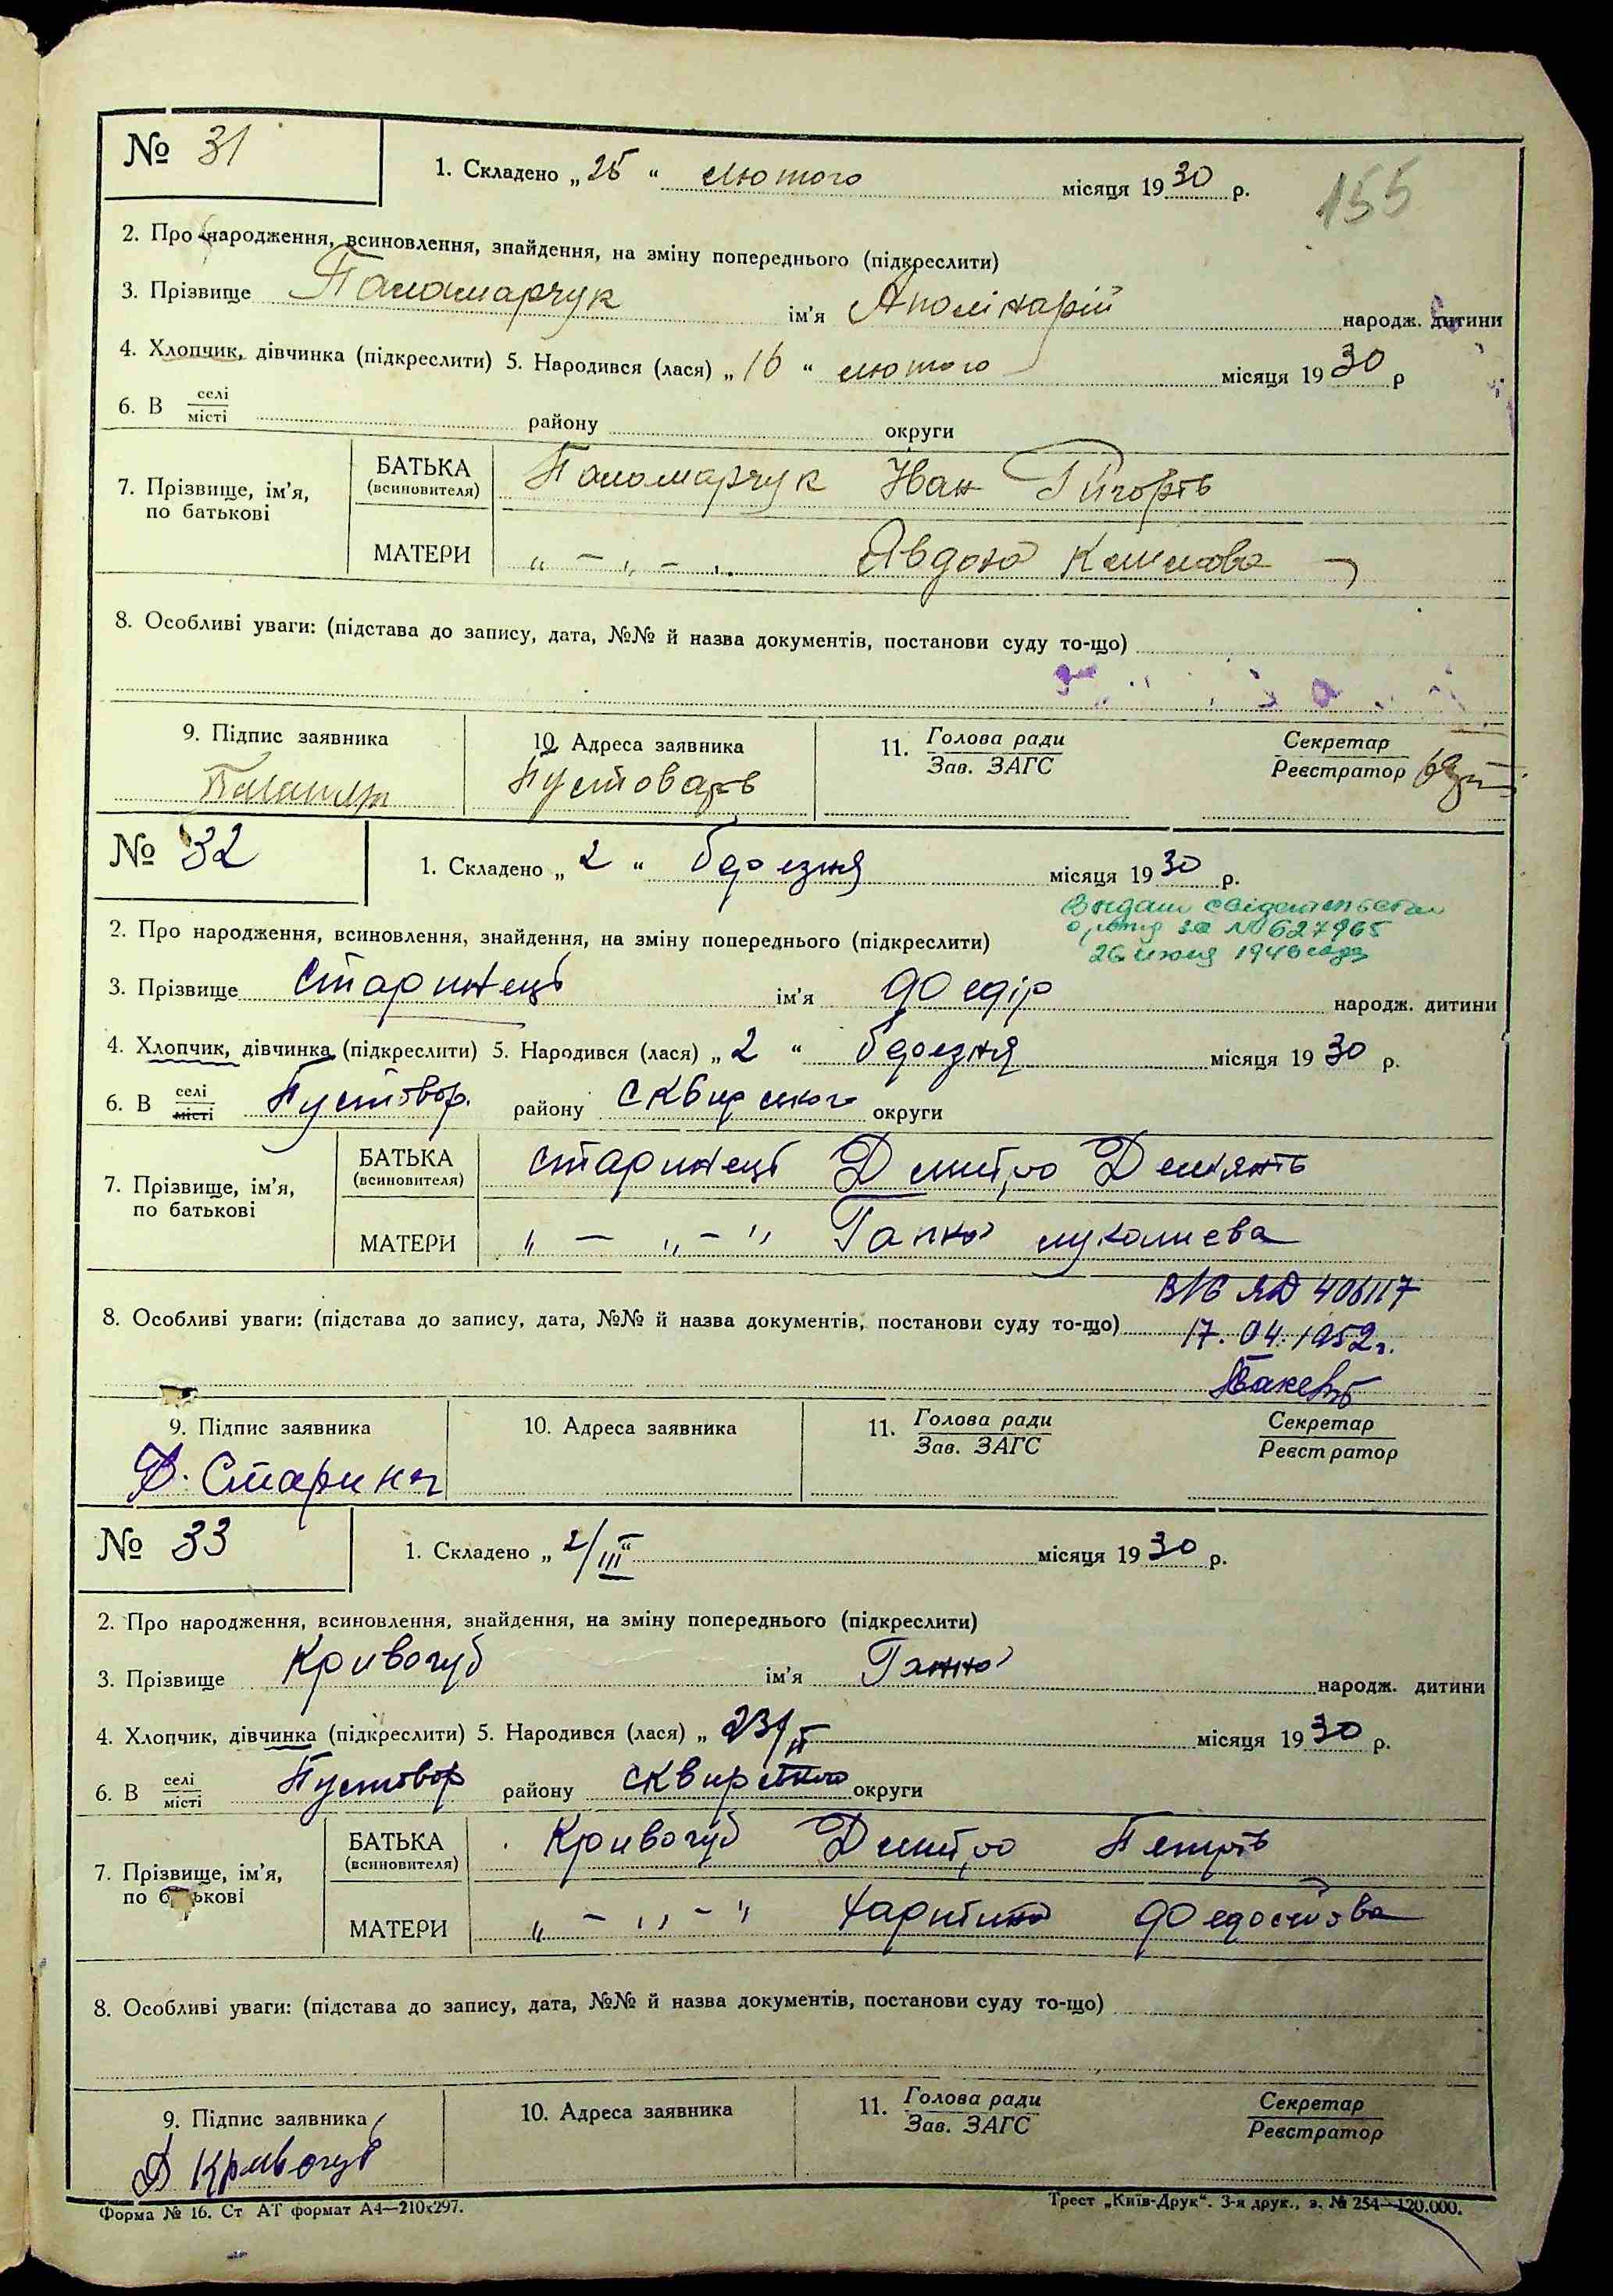 № 31
1. Складено „ 25 “ лютого місяця 1930 р.
155
2. Про народження, всиновлення, знайдення, на зміну попереднього (підкреслити)
3. Прізвище Паламарчук ім'я Аполінарій народж. дитини
4. Хлопчик, дівчинка (підкреслити) 5. Народився (лася) „ 16 “ лютого місяця 1930 р
6. В селі/місті району округи
7. Прізвище, ім'я, по батькові
БАТЬКА (всиновителя) Паламарчук Іван
МАТЕРИ „ – „ – „
8. Особливі уваги: (підстава до запису, дата, №№ й назва документів, постанови суду то-що)
9. Підпис заявника
10. Адреса заявника
11. Голова ради/Зав. ЗАГС
Секретар/Реєстратор
№ 32
1. Складено „ 2 “ березня місяця 1930 р.
за №627965
2. Про народження, всиновлення, знайдення, на зміну попереднього (підкреслити)
26 июня 1946 года
3. Прізвище Старинець ім'я Федір народж. дитини
4. Хлопчик, дівчинка (підкреслити) 5. Народився (лася) „ 2 “ березня місяця 1930 р.
6. В селі/місті Пустовар. району Сквирського округи
7. Прізвище, ім'я, по батькові
БАТЬКА (всиновителя) Старинець Дмитро
МАТЕРИ „ – „ – „ Гапка
ЯД 406117
8. Особливі уваги: (підстава до запису, дата, №№ й назва документів, постанови суду то-що) 17.04.1952г.
9. Підпис заявника
10. Адреса заявника
11. Голова ради/Зав. ЗАГС
Секретар/Реєстратор
Д. Старинец
№ 33
1. Складено „ 2/III “ місяця 1930 р.
2. Про народження, всиновлення, знайдення, на зміну попереднього (підкреслити)
3. Прізвище Кривогуб ім'я Ганна народж. дитини
4. Хлопчик, дівчинка (підкреслити) 5. Народився (лася) „ 23/II місяця 1930 р.
6. В селі/місті Пустовар району Сквирского округи
7. Прізвище, ім'я, по батькові
БАТЬКА (всиновителя) Кривогуб Дмитро Петрів
МАТЕРИ „ – „ – „ Харитина
8. Особливі уваги: (підстава до запису, дата, №№ й назва документів, постанови суду то-що)
9. Підпис заявника
10. Адреса заявника
11. Голова ради/Зав. ЗАГС
Секретар/Реєстратор
Д Кривогуб
Форма № 16. Ст АТ формат А4—210х297.
Трест „Київ-Друк“. 3-я друк., з. № 254—120.000.